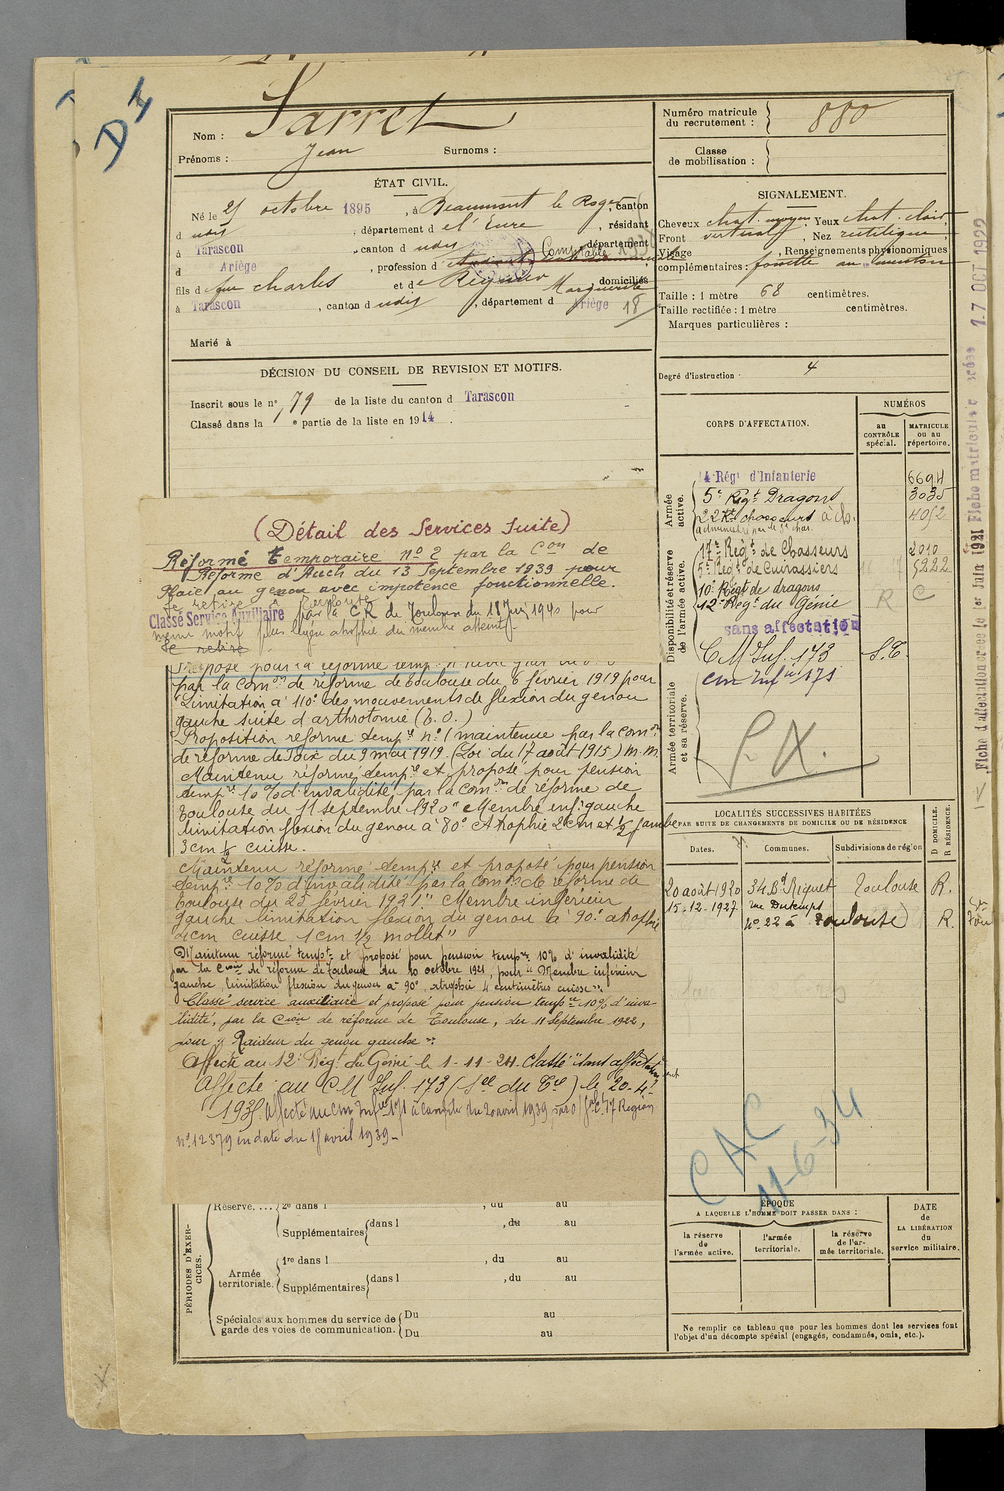 D I
Nom : Sarret
Prénoms : Jean Surnoms :
Numéro matricule
du recrutement : 880
Classe
de mobilisation :
ÉTAT CIVIL.
Né le 25 octobre 1895, à Beaumont le Roger, canton
d udis, département d e l'Eure, résidant
à Tarascon, canton d udis, département
d Ariège, profession d Comptable
fils d e feu Charles et de Regnier Marguerite domiciliés
à Tarascon, canton d udis, département d Ariège
Marié à
SIGNALEMENT.
Cheveux chat. moyen Yeux chat. clair
Front vertical, Nez rectiligne
Visage , Renseignements physionomiques
complémentaires : fossette au menton
Taille : 1 mètre 68 centimètres.
Taille rectifiée : 1 mètre centimètres.
Marques particulières :
Degré d'instruction : 4
DÉCISION DU CONSEIL DE REVISION ET MOTIFS.
Inscrit sous le n° 79 de la liste du canton d Tarascon
Classé dans la 1e partie de la liste en 1914.
(Détail des Services Suite)
Réformé Temporaire N° 2 par la Con de
Réforme d'Auch du 13 Septembre 1939 pour
Plaie au genou avec impotence fonctionnelle.
Se retire à
Classé Service Auxiliaire par la CR de Toulouse du 18 1940 pour
même motif plus légère atrophie du membre atteint
Se retire
Proposé pour la réforme temp.
par la Comon de réforme de Toulouse du 6 février 1919 pour
Limitation à 110° des mouvements de flexion du genou
gauche suite d'arthrotomie (E.O.)
Proposition réforme tempre n° 1 maintenue par la Comon
de réforme de Foix du 9 mai 1919. (Loi du 17 août 1915) m.m.
Maintenu réformé tempre et proposé pour pension
tempre 10 % d'invalidité, par la Comon de réforme de
Toulouse du 11 septembre 1920 "Membre inf. gauche
limitation flexion du genou à 80° Atrophie 2cm et 1/2 jambe
3cm 1/2 cuisse.
Maintenu réformé tempre et proposé pour pension
tempre 10 % d'invalidité par la Comon de réforme de
Toulouse du 23 février 1921 "Membre inférieur
gauche limitation flexion du genou à 90° atrophie
4cm cuisse 1cm 1/2 mollet"
Maintenu réformé tempre et proposé pour pension tempre 10% d'invalidité
par la Cion de réforme de Toulouse du 10 octobre 1921, pour "Membre inférieur
gauche, limitation flexion du genou à 90° atrophie 4 centimètres cuisse".
Classé service auxiliaire et proposé pour pension tempre 10%, d'inva-
lidité, par la Cion de réforme de Toulouse, du 11 Septembre 1922,
pour "Raideur du genou gauche".
Affecté au 12e Régt du Génie le 1-11-24. Classé "sans affectation"
Affecté au CM Inf. 173 (Sce du Tre) le 20-4-
1935. Affecté au cm Inf.rie 171 à compter du 20 avril 1939, 17 Région
n° 12379 en date du 15 avril 1939.-
CORPS D'AFFECTATION.
NUMÉROS
au
CONTRÔLE
spécial.
MATRICULE
ou au
répertoire.
Armée
active.
14 Régt d'Infanterie 6694
5e Régt Dragons 3035
22 Rt chasseurs à ch. 4052
Disponibilité et réserve
de l'armée active.
17e Régt de Chasseurs 2010
5e Régt de Cuirassiers 5222
10e Régt de dragons
12e Régt du Génie R C
sans affectation
C M Inf. 173 S.T.
cm Infie 171
Armée territoriale
et sa réserve.
S. X.
LOCALITÉS SUCCESSIVES HABITÉES
PAR SUITE DE CHANGEMENTS DE DOMICILE OU DE RÉSIDENCE
Dates.
Communes.
Subdivisions de région
D DOMICILE.
R RÉSIDENCE.
20 août 1920 34 Bd Riquet Toulouse R.
15-12-1927 rue Dutemps
n° 22 à Toulouse R.
CAC
11-6-34
ÉPOQUE
A LAQUELLE L'HOMME DOIT PASSER DANS :
la réserve
de
l'armée active.
l'armée
territoriale.
la réserve
de l'ar-
mée territoriale.
DATE
de
LA LIBÉRATION
du
service militaire.
Ne remplir ce tableau que pour les hommes dont les services font
l'objet d'un décompte spécial (engagés, condamnés, omis, etc.).
PÉRIODES D'EXER-
CICES.
Réserve. ... 2e dans l , du au
Supplémentaires dans l , du au
Armée
territoriale.
1re dans l , du au
Supplémentaires dans l , du au
Spéciales aux hommes du service de
garde des voies de communication.
Du au
Du au
Fiche d'affectation créée le 1er Juin 1921 Fiche matricule créée 1-7 OCT 1922